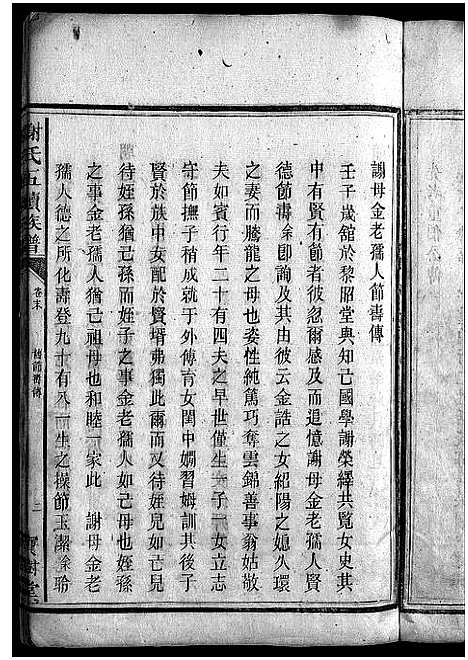 謝母金老孺人節壽傳
壬子歲舘於黎照堂與知己國學謝榮繹共覧女史其
中有賢有節者彼忽爾感及而追憶謝母金老孺人賢
德節壽余卽詢及彼云金誥之女紹陽之媳久環
之妻而騰龍之母也姿性純篤巧奪雲錦善事翁姑敬
夫如賓行年二十有四夫之早世僅生一子一女立志
守節撫子稍成就于外傳育女閨中嫺習姆訓其後子
賢於族中女配於賢壻弗獨此爾而又待姪兒如己兒
待姪孫猶己孫而姪子之事金老孺人如己母也姪孫
之事金老孺人猶己祖母也和睦一家此 謝母金老
孺人德之所化壽登九十有八一生之操節玉潔余聆
謝氏五項族譜
卷末
節壽傳
二
寶樹堂